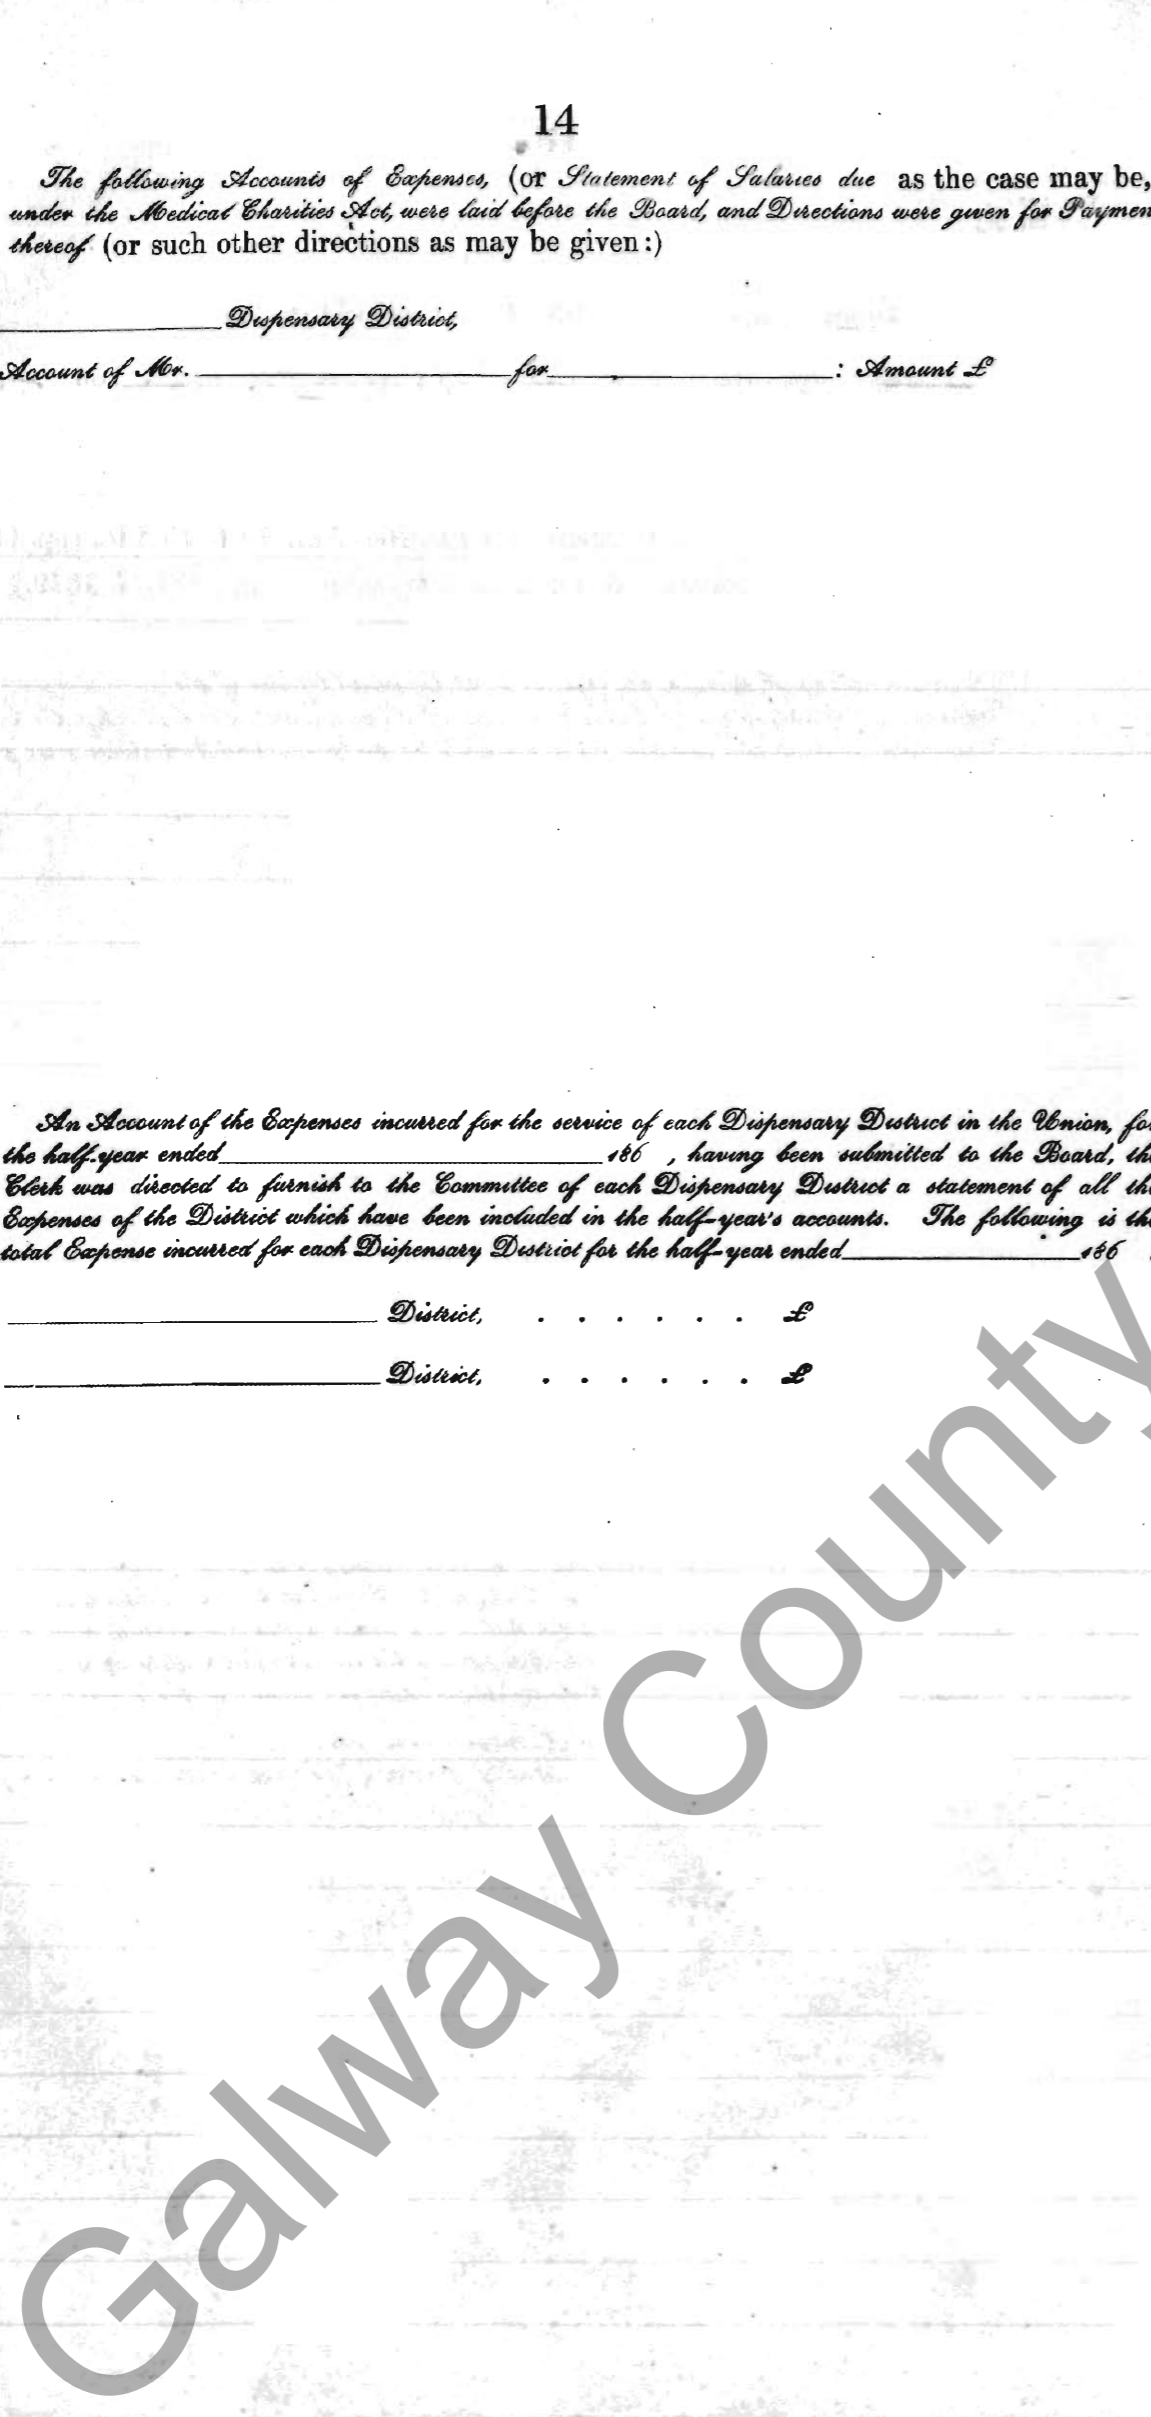 14
The following Accounts of Expenses, (or Statement of Salaries due as the case may be,
under the Medical Charities Act, were laid before the Board, and Directions were given for Paymen
thereof (or such other directions as may be given:)
Dispensary District,
Account of Mr. for : Amount £
An Account of the Expenses incurred for the service of each Dispensary District in the Union, fo
the half-year ended 186 , having been submitted to the Board, th
Clerk was directed to furnish to the Committee of each Dispensary District a statement of all th
Expenses of the District which have been included in the half-year's accounts. The following is th
total Expense incurred for each Dispensary District for the half-year ended 186
District, . . . . . . £
District, . . . . . . £
Galway County